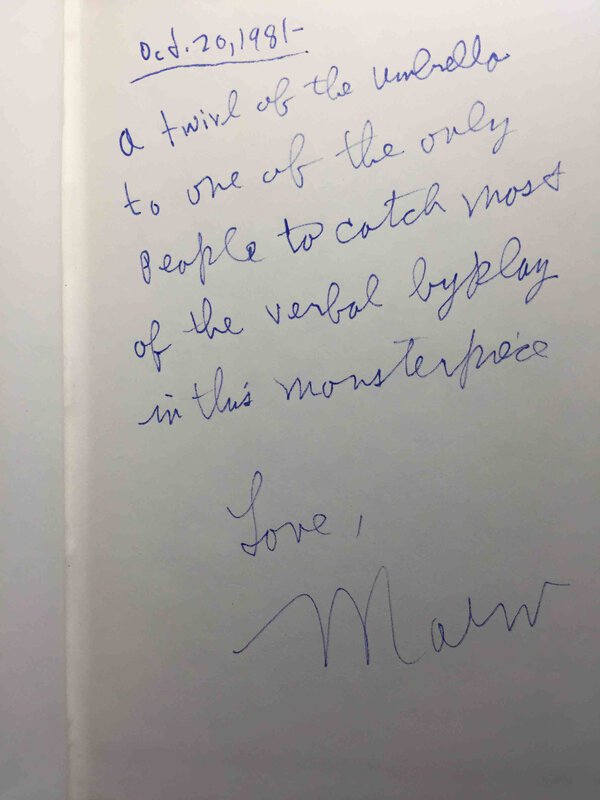 Oct. 20, 1981-
a twirl of the umbrella
to one of the only
people to catch most
of the verbal byplay
in this monsterpiece
Love,